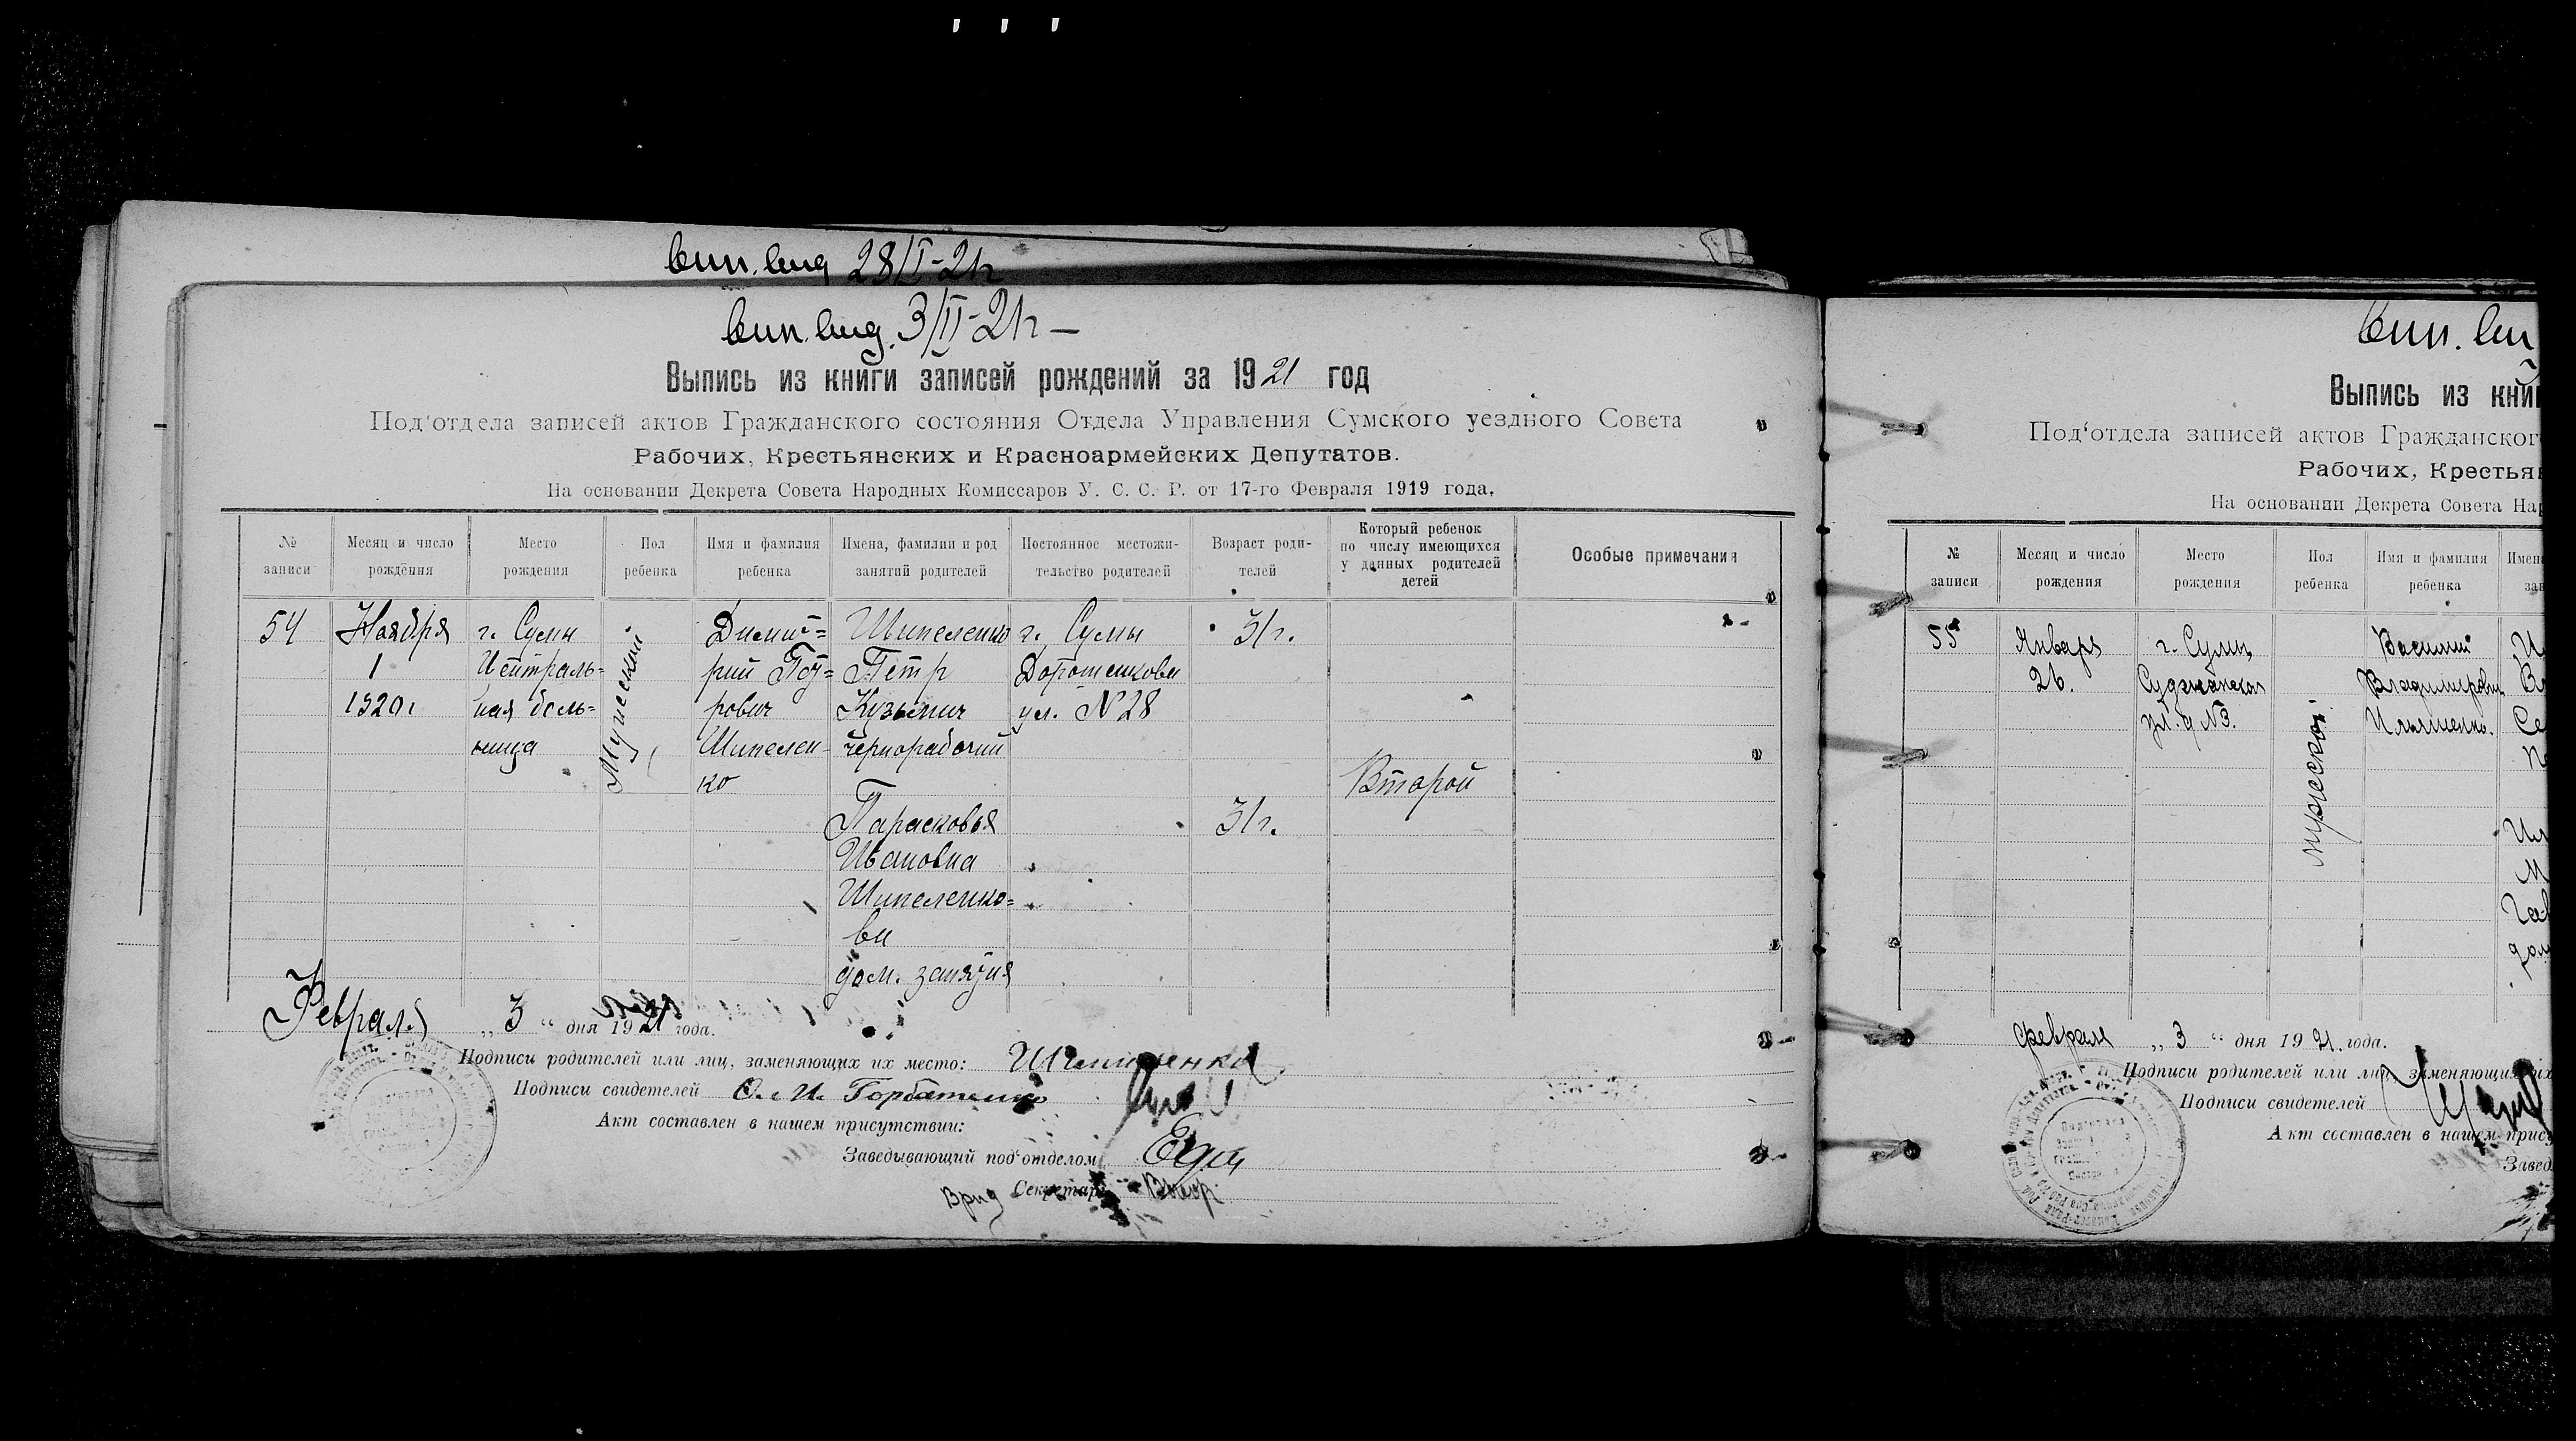 28/I-21г
3/II-21г —
Выпись из книги записей рождений за 1921 год
Под‘отдела записей актов Гражданского состояния Отдела Управления Сумского уездного Совета
Рабочих, Крестьянских и Красноармейских Депутатов.
На основании Декрета Совета Народных Комиссаров У. С. С. Р. от 17-го Февраля 1919 года.
№ записи
Месяц и число рождения
Место рождения
Пол ребенка
Имя и фамилия ребенка
Имена, фамилии и род занятий родителей
Постоянное местожи-
тельство родителей
Возраст роди-
телей
Который ребенок
по числу имеющихся
у данных родителей
детей
Особые примечания
54
Ноября
1
1920г
г. Сумы
Централь=
ная боль=
ница
Мужеский
Димит=
рий Пет=
рович
Шипелен-
ко
Шипеленко
Петр
Кузьмич
чернорабочий
Парасковья
Ивановна
Шипеленко=
ва
дом. занятия
г. Сумы
Дорошенкова
ул. № 28
31г.
31г.
Второй
Февраля „ 3 “ дня 1921 года.
Подписи родителей или лиц, заменяющих их место:
Подписи свидетелей Горбатенко
Акт составлен в нашем присутствии:
Заведывающий под‘отделом
Врид Секретарь
Выпись из кни
Под‘отдела записей актов Гражданског
Рабочих, Крестьян
На основании Декрета Совета Нар
№ записи
Месяц и число рождения
Место рождения
Пол ребенка
Имя и фамилия ребенка
55
Январь
26.
г. Сумы
Суджанская
ул. д №3.
мужеской
Василий
Владимирович
Ильяшенко.
февраля „ 3 “ дня 1921. года.
Подписи родителей или лиц, заменяющих их
Подписи свидетелей
Акт составлен в нашем прису
Завед